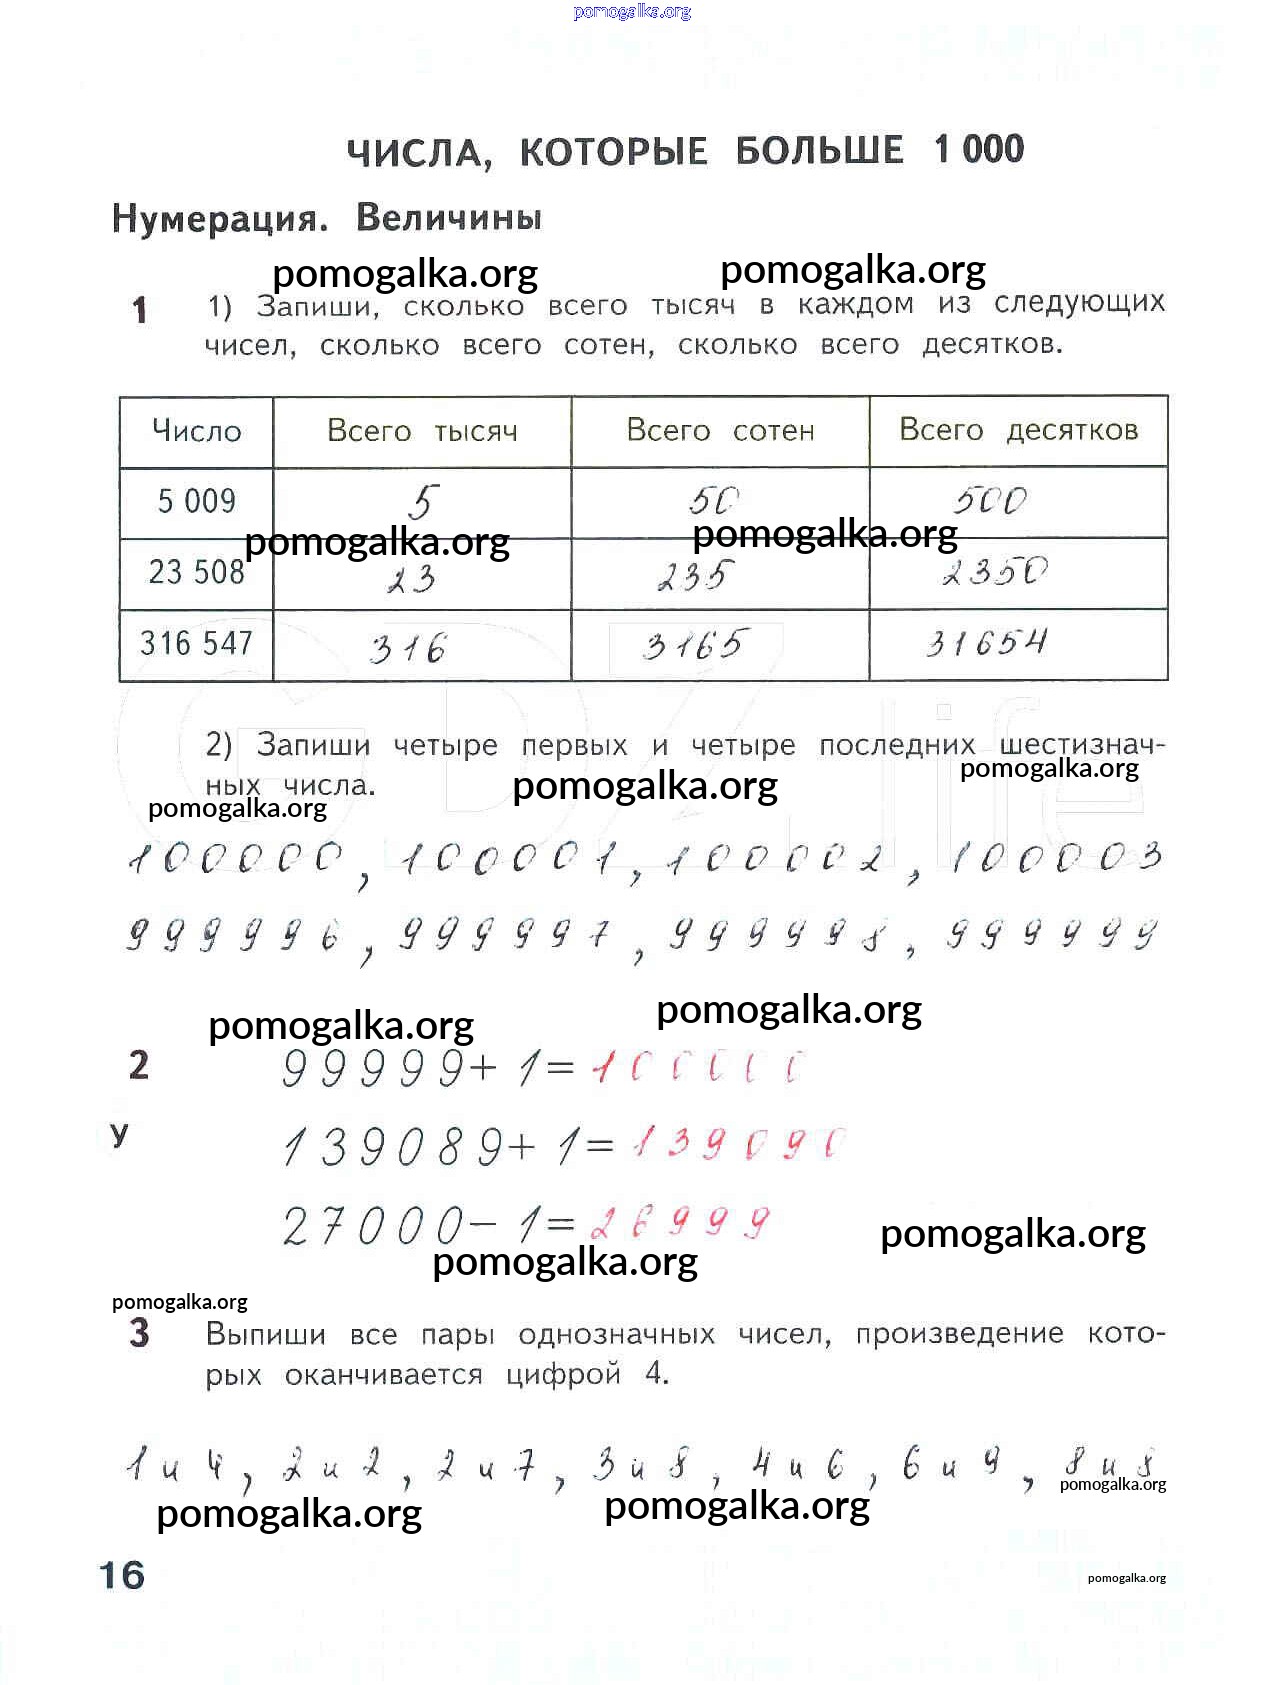 pomogalka.org
ЧИСЛА, КОТОРЫЕ БОЛЬШЕ 1 000
Нумерация. Величины
pomogalka.org pomogalka.org
1 1) Запиши, сколько всего тысяч в каждом из следующих
чисел, сколько всего сотен, сколько всего десятков.
Число Всего тысяч Всего сотен Всего десятков
5 009 5 50 500
pomogalka.org pomogalka.org
23 508 23 235 2350
316 547 316 3165 31654
GDZ life
2) Запиши четыре первых и четыре последних шестизнач-
ных числа.
pomogalka.org pomogalka.org pomogalka.org
100000, 100001, 100002, 100003
999996, 999997, 999998, 999999
pomogalka.org pomogalka.org
2 99999+ 1= 100000
У 139089+ 1= 139090
27000− 1= 26999
pomogalka.org pomogalka.org
pomogalka.org
3 Выпиши все пары однозначных чисел, произведение кото-
рых оканчивается цифрой 4.
1 и 4, 2 и 2, 2 и 7, 3 и 8, 4 и 6, 6 и 9, 8 и 8
pomogalka.org pomogalka.org pomogalka.org
16 pomogalka.org